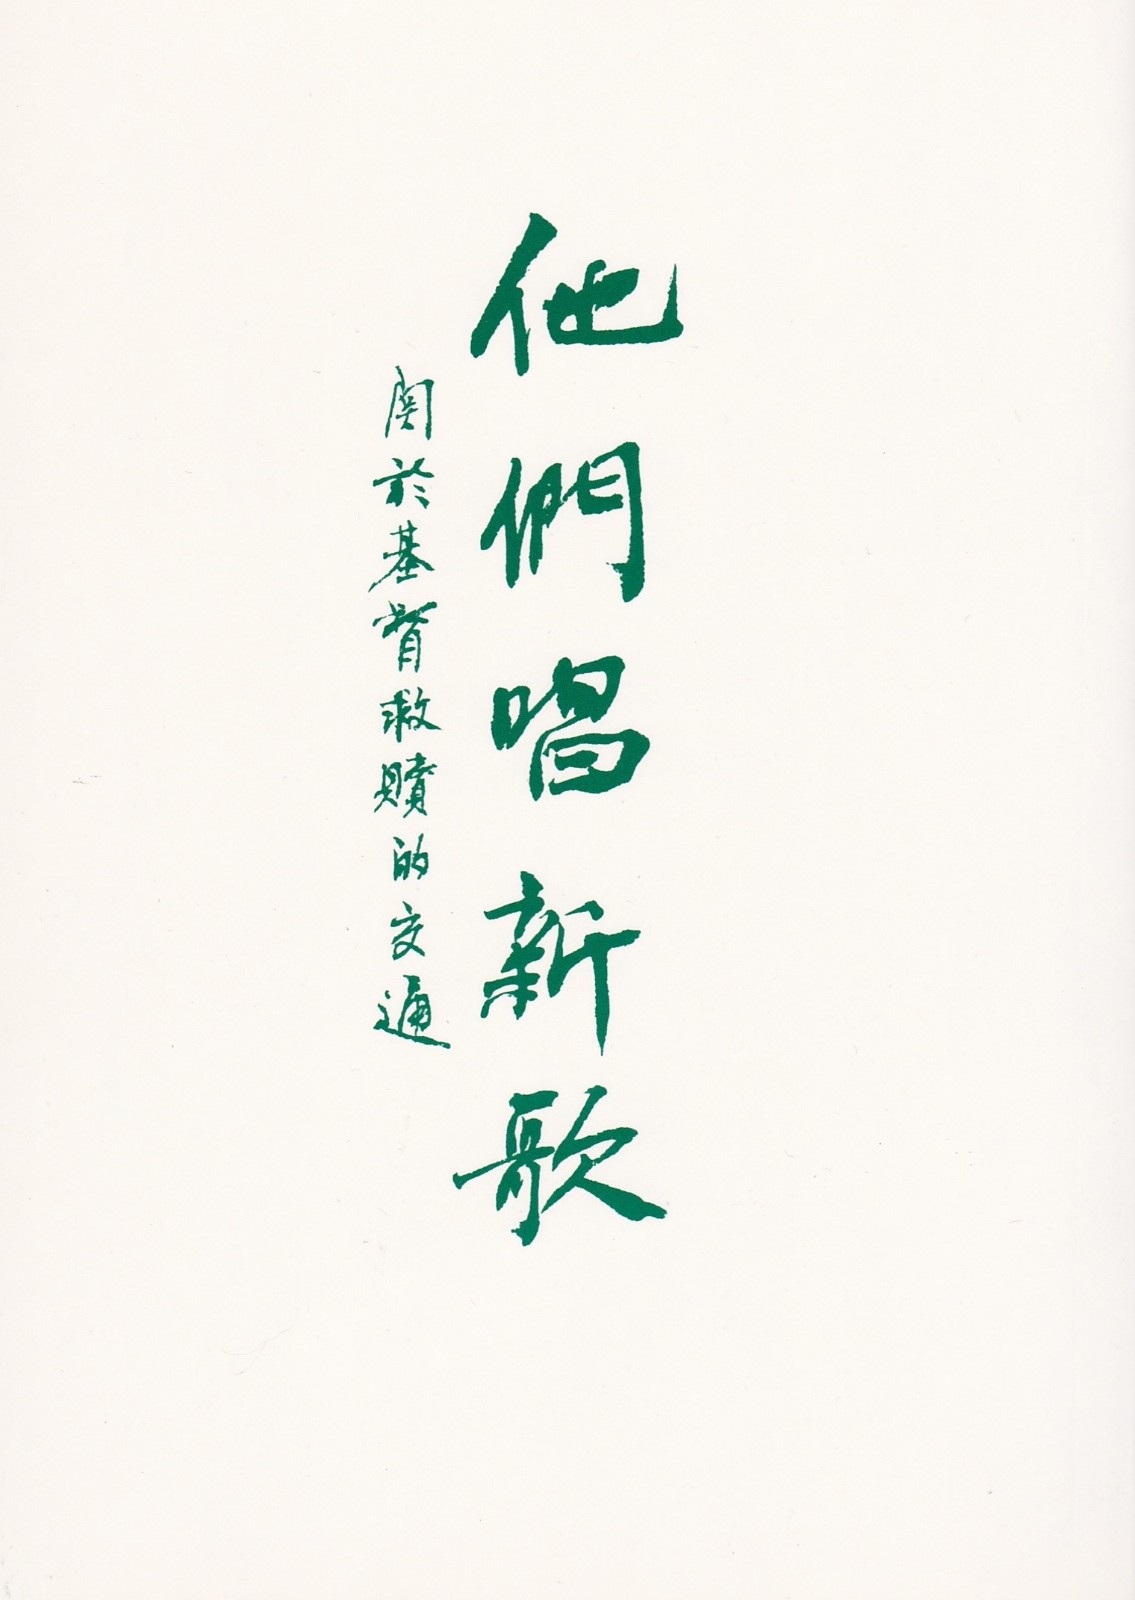 他們唱新歌
関於基督救贖的交通